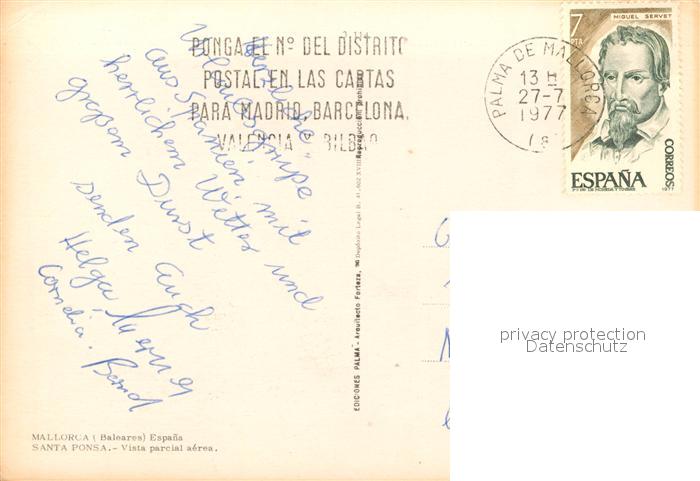 PONGA EL Nº DEL DISTRITO
POSTAL EN LAS CARTAS
PARA MADRID, BARCELONA,
VALENCIA Y BILBAO
PALMA DE MALLORCA
13 H
27-7
1977
7
PTA
MIGUEL SERVET
CORREOS
ESPAÑA
1977
Herzliche
Urlaubsgrüße
aus Spanien mit
herrlichem Wetter und
großem Durst
senden Euch
Helga
Cornelia. Bernd
EDICIONES PALMA - Arquitecto Forteza, Depósito Legal B. 41.602 XVIII Reproducción prohibida
privacy protection
Datenschutz
MALLORCA ( Baleares) España
SANTA PONSA.- Vista parcial aérea.